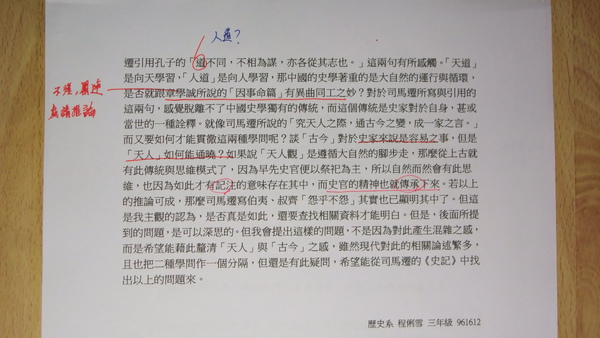 人道?
遷引用孔子的「道不同,不相為謀,亦各從其志也。」這兩句有所感觸。「天道」
是向天學習,「人道」是向人學習,那中國的史學著重的是大自然的運行與循環,
是否就跟章學誠所說的「因事命篇」有異曲同工之妙?對於司馬遷所寫與引用的
這兩句,感覺脫離不了中國史學獨有的傳統,而這個傳統是史家對於自身,甚或
當世的一種詮釋。就像司馬遷所說的「究天人之際,通古今之變,成一家之言。」
而又要如何才能貫徹這兩種學問呢?談「古今」對於史家來說是容易之事,但是
「天人」如何能通曉?如果說「天人觀」是遵循大自然的腳步走,那麼從上古就
有此傳統與思維模式了,因為早先史官便以祭祀為主,所以自然而然會有此思
維,也因為如此才有記注的意味存在其中,而史官的精神也就傳承下來。若以上
的推論可成,那麼司馬遷寫伯夷、叔齊「怨乎不怨」其實也已顯明其中了。但這
是我主觀的認為,是否真是如此,還要查找相關資料才能明白。但是,後面所提
到的問題,是可以深思的。但我會提出這樣的問題,不是因為對此產生混雜之感,
而是希望能藉此釐清「天人」與「古今」之感,雖然現代對此的相關論述繁多,
且也把二種學問作一個分隔,但還是有此疑問,希望能從司馬遷的《史記》中找
出以上的問題來。
歷史系 程俐雪 三年級 961612